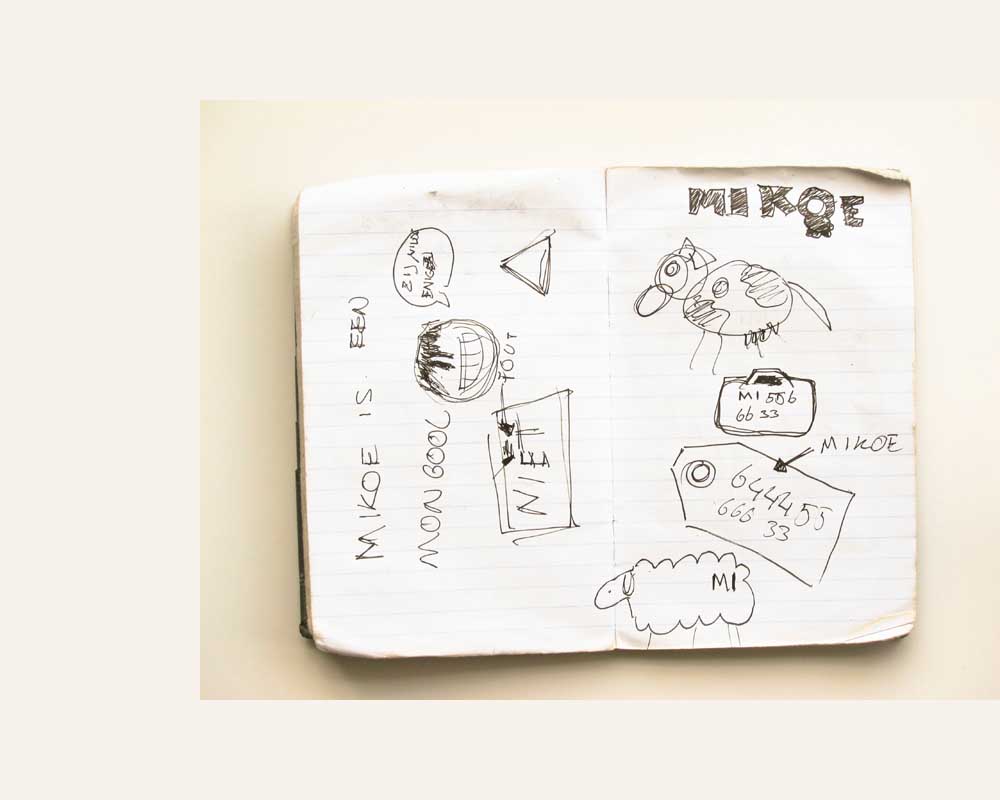 MIKOE IS EEN
MONGOOL
ZIJ
ENIGE
FOUT
NIET
MIKOE
MI 556
66 33
MIKOE
6444 55
666 33
MI